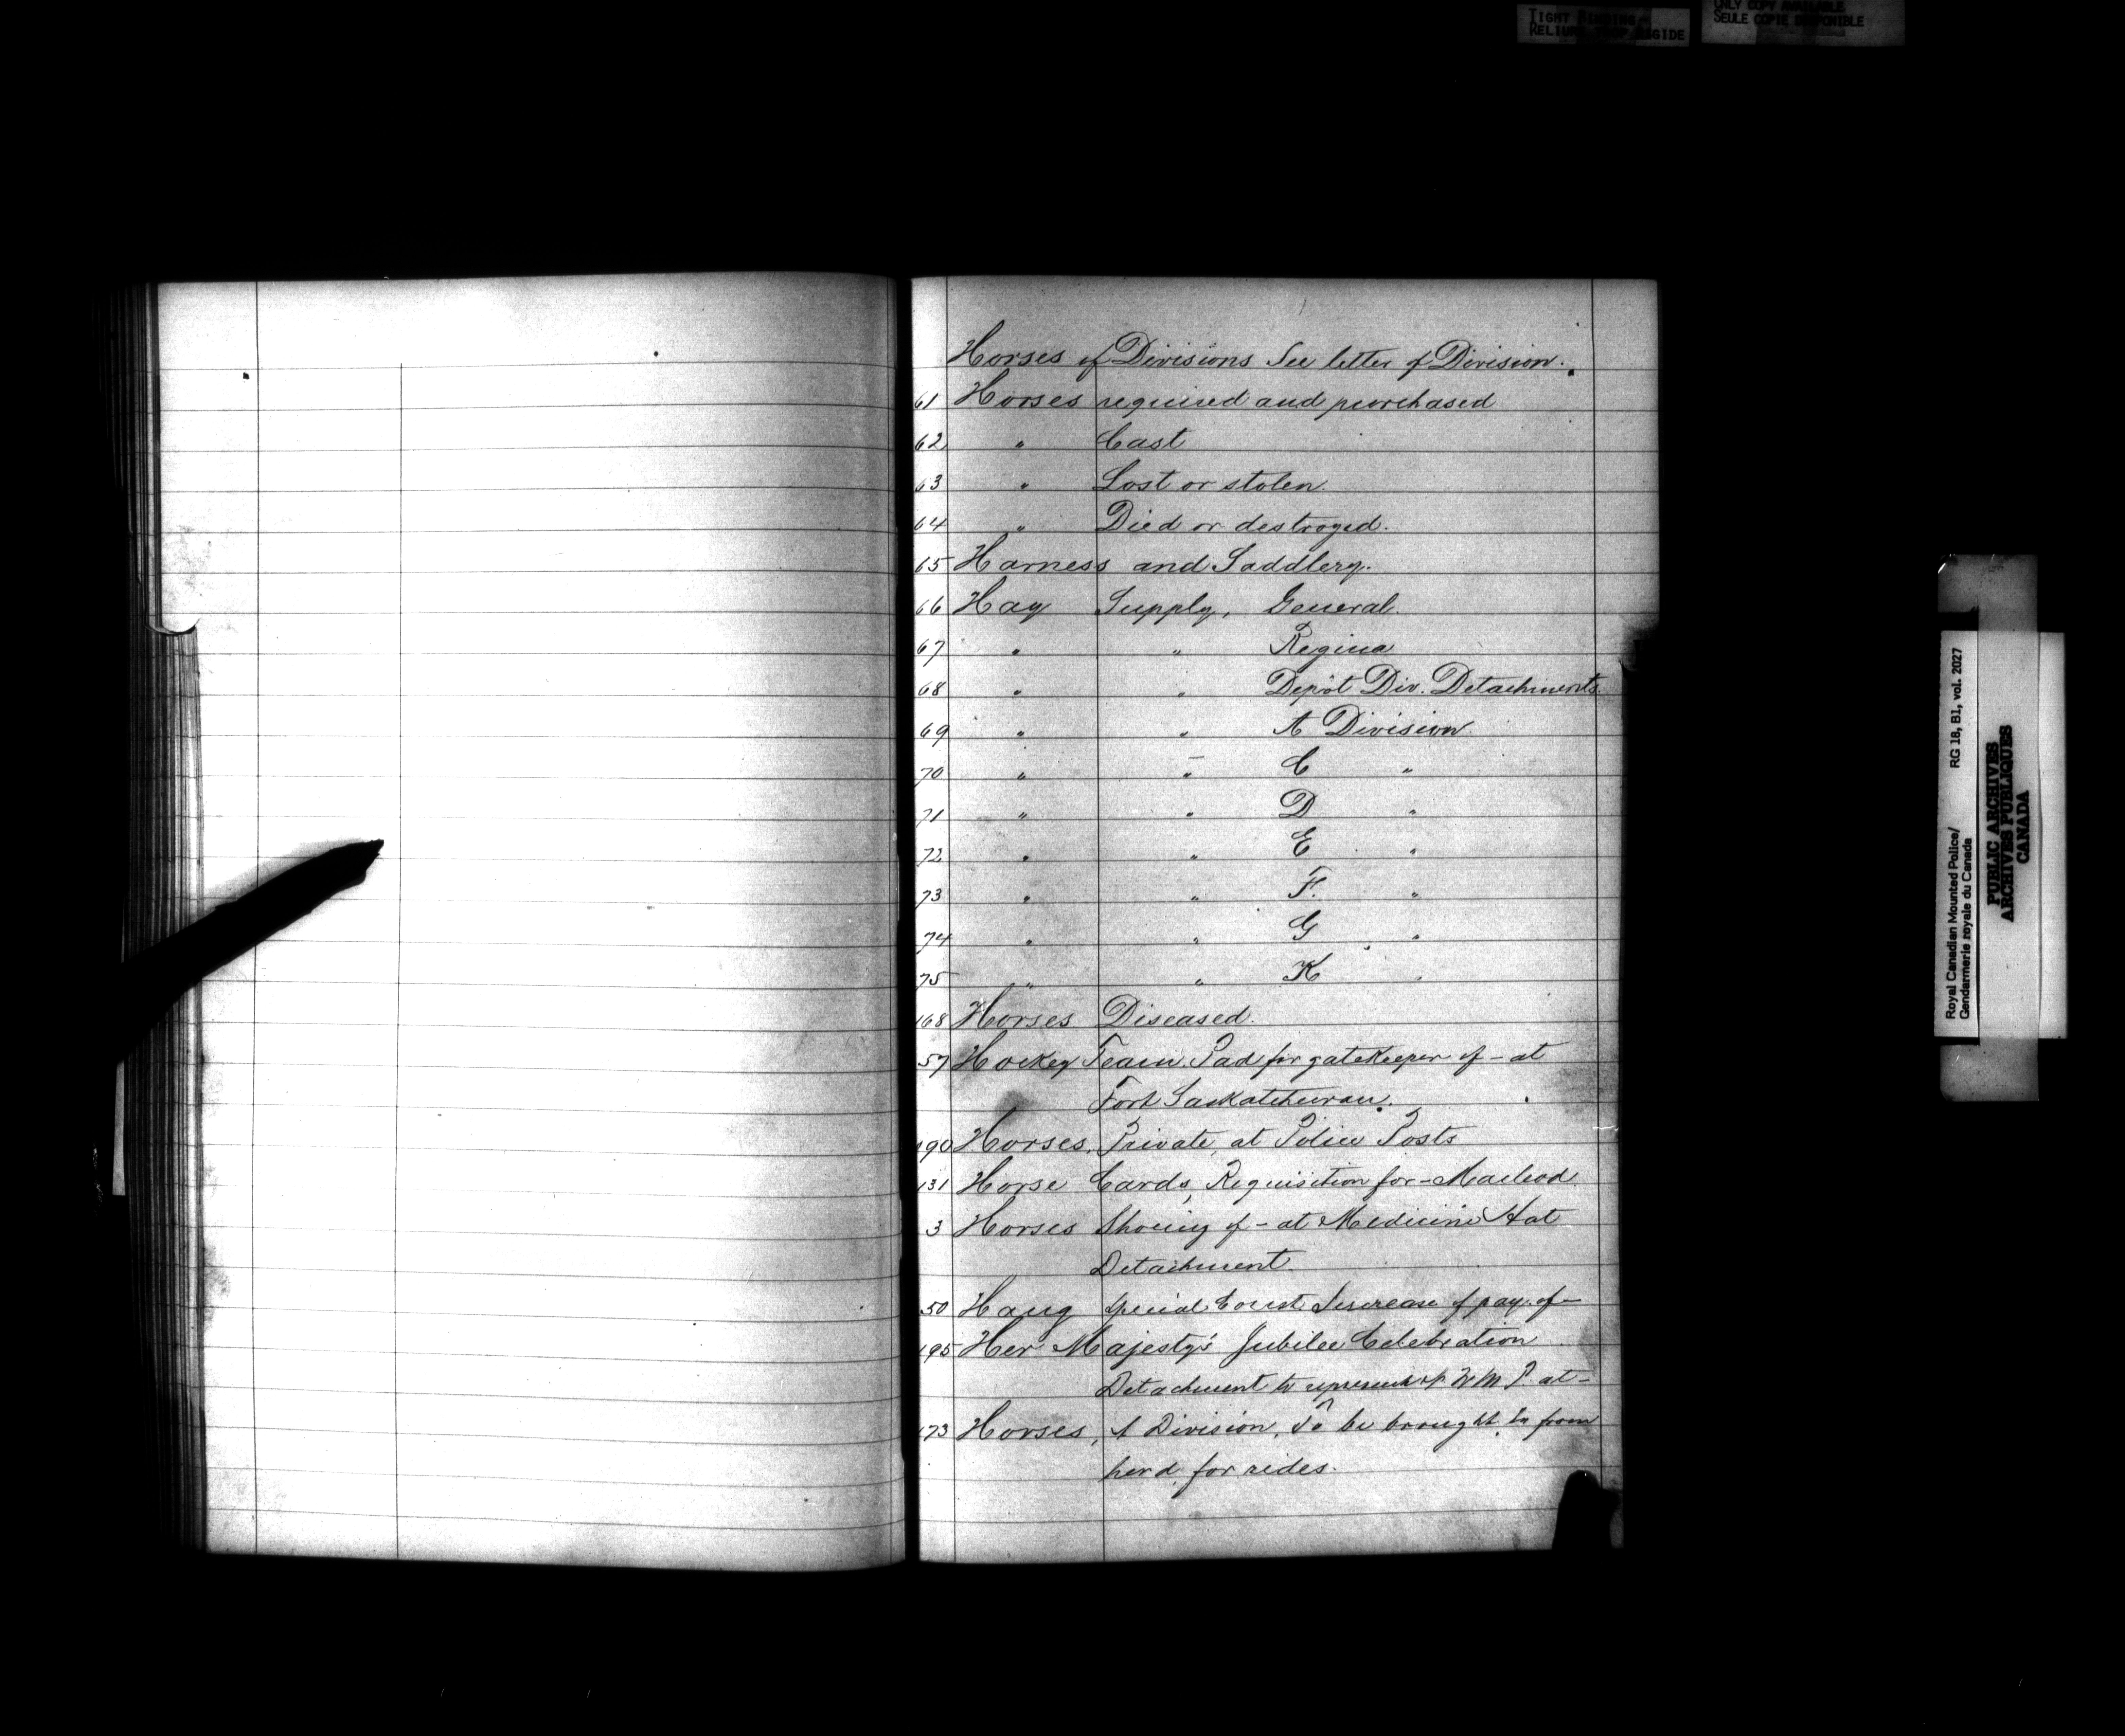 TIGHT BINDING
RELIURE TROP RIGIDE
ONLY COPY AVAILABLE
SEULE COPIE DISPONIBLE
Horses of Divisions See letter of Division.
61 Horses required and purchased
62 " Cast
63 " Lost or stolen.
64 " Died or destroyed.
65 Harness and Saddlery.
66 Hay Supply, General.
67 " " Regina
68 " " Depôt Div. Detachments
69 " " A Division
70 " " C "
71 " " D "
72 " " E "
73 " " F. "
74 " " G "
75 " " K "
168 Horses Diseased.
57 Hockey Team. Pad for gatekeeper of - at
Fort Saskatchewan.
190 Horses, Private, at Police Posts
131 Horse Cards, Requisition for - Macleod.
3 Horses Shoeing of - at Medicine Hat
Detachment.
50 Haug Special Const. Increase of pay of -
195 Her Majesty's Jubilee Celebration
Detachment to represent N W M P. at -
173 Horses, A Division, To be brought in from
herd for rides.
Royal Canadian Mounted Police/ RG 18, B1, vol. 2027
Gendarmerie royale du Canada
PUBLIC ARCHIVES
ARCHIVES PUBLIQUES
CANADA